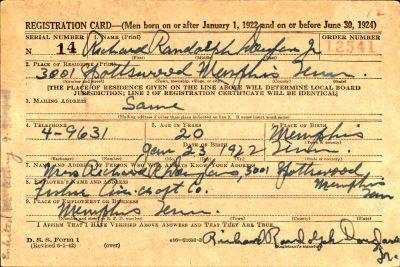 REGISTRATION CARD—(Men born on or after January 1, 1922 and on or before June 30, 1924)
SERIAL NUMBER 1. NAME (Print) ORDER NUMBER
N 14 Richard Randolph Jr 12541
2. PLACE OF RESIDENCE (Print)
3001 Memphis Tenn.
[THE PLACE OF RESIDENCE GIVEN ON THE LINE ABOVE WILL DETERMINE LOCAL BOARD
JURISDICTION; LINE 2 OF REGISTRATION CERTIFICATE WILL BE IDENTICAL]
3. MAILING ADDRESS
Same
[Mailing address if other than place indicated on line 2. If same insert word same]
4. TELEPHONE 5. AGE IN YEARS 6. PLACE OF BIRTH
4-9631 20 Memphis
DATE OF BIRTH
Jan 23 1922 Tenn
7. NAME AND ADDRESS OF PERSON WHO WILL ALWAYS KNOW YOUR ADDRESS
Mrs Richard R 3001
8. EMPLOYER'S NAME AND ADDRESS Memphis
Aircraft Co. Tenn
9. PLACE OF EMPLOYMENT OR BUSINESS
Memphis Tenn.
I AFFIRM THAT I HAVE VERIFIED ABOVE ANSWERS AND THAT THEY ARE TRUE.
D. S. S. Form 1
(Revised 6-9-42) Richard Randolph
Jr.